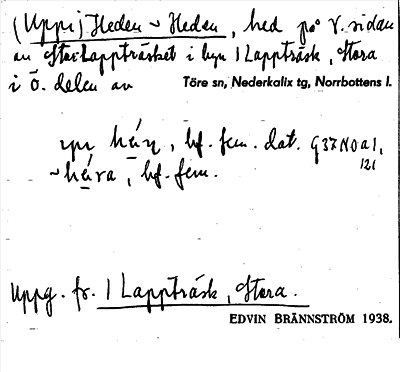 (Uppi) Heden ~ Hedan, hed på V. sidan
av Stor-Lappträsket i byn 1 Lappträsk, Stora
i ö. delen av Töre sn, Nederkalix tg, Norrbottens l.
bf. fem. dat. 937 N 0 a 1,
121
bf. fem.
Uppg. fr. 1 Lappträsk, Stora.
EDVIN BRÄNNSTRÖM 1938.